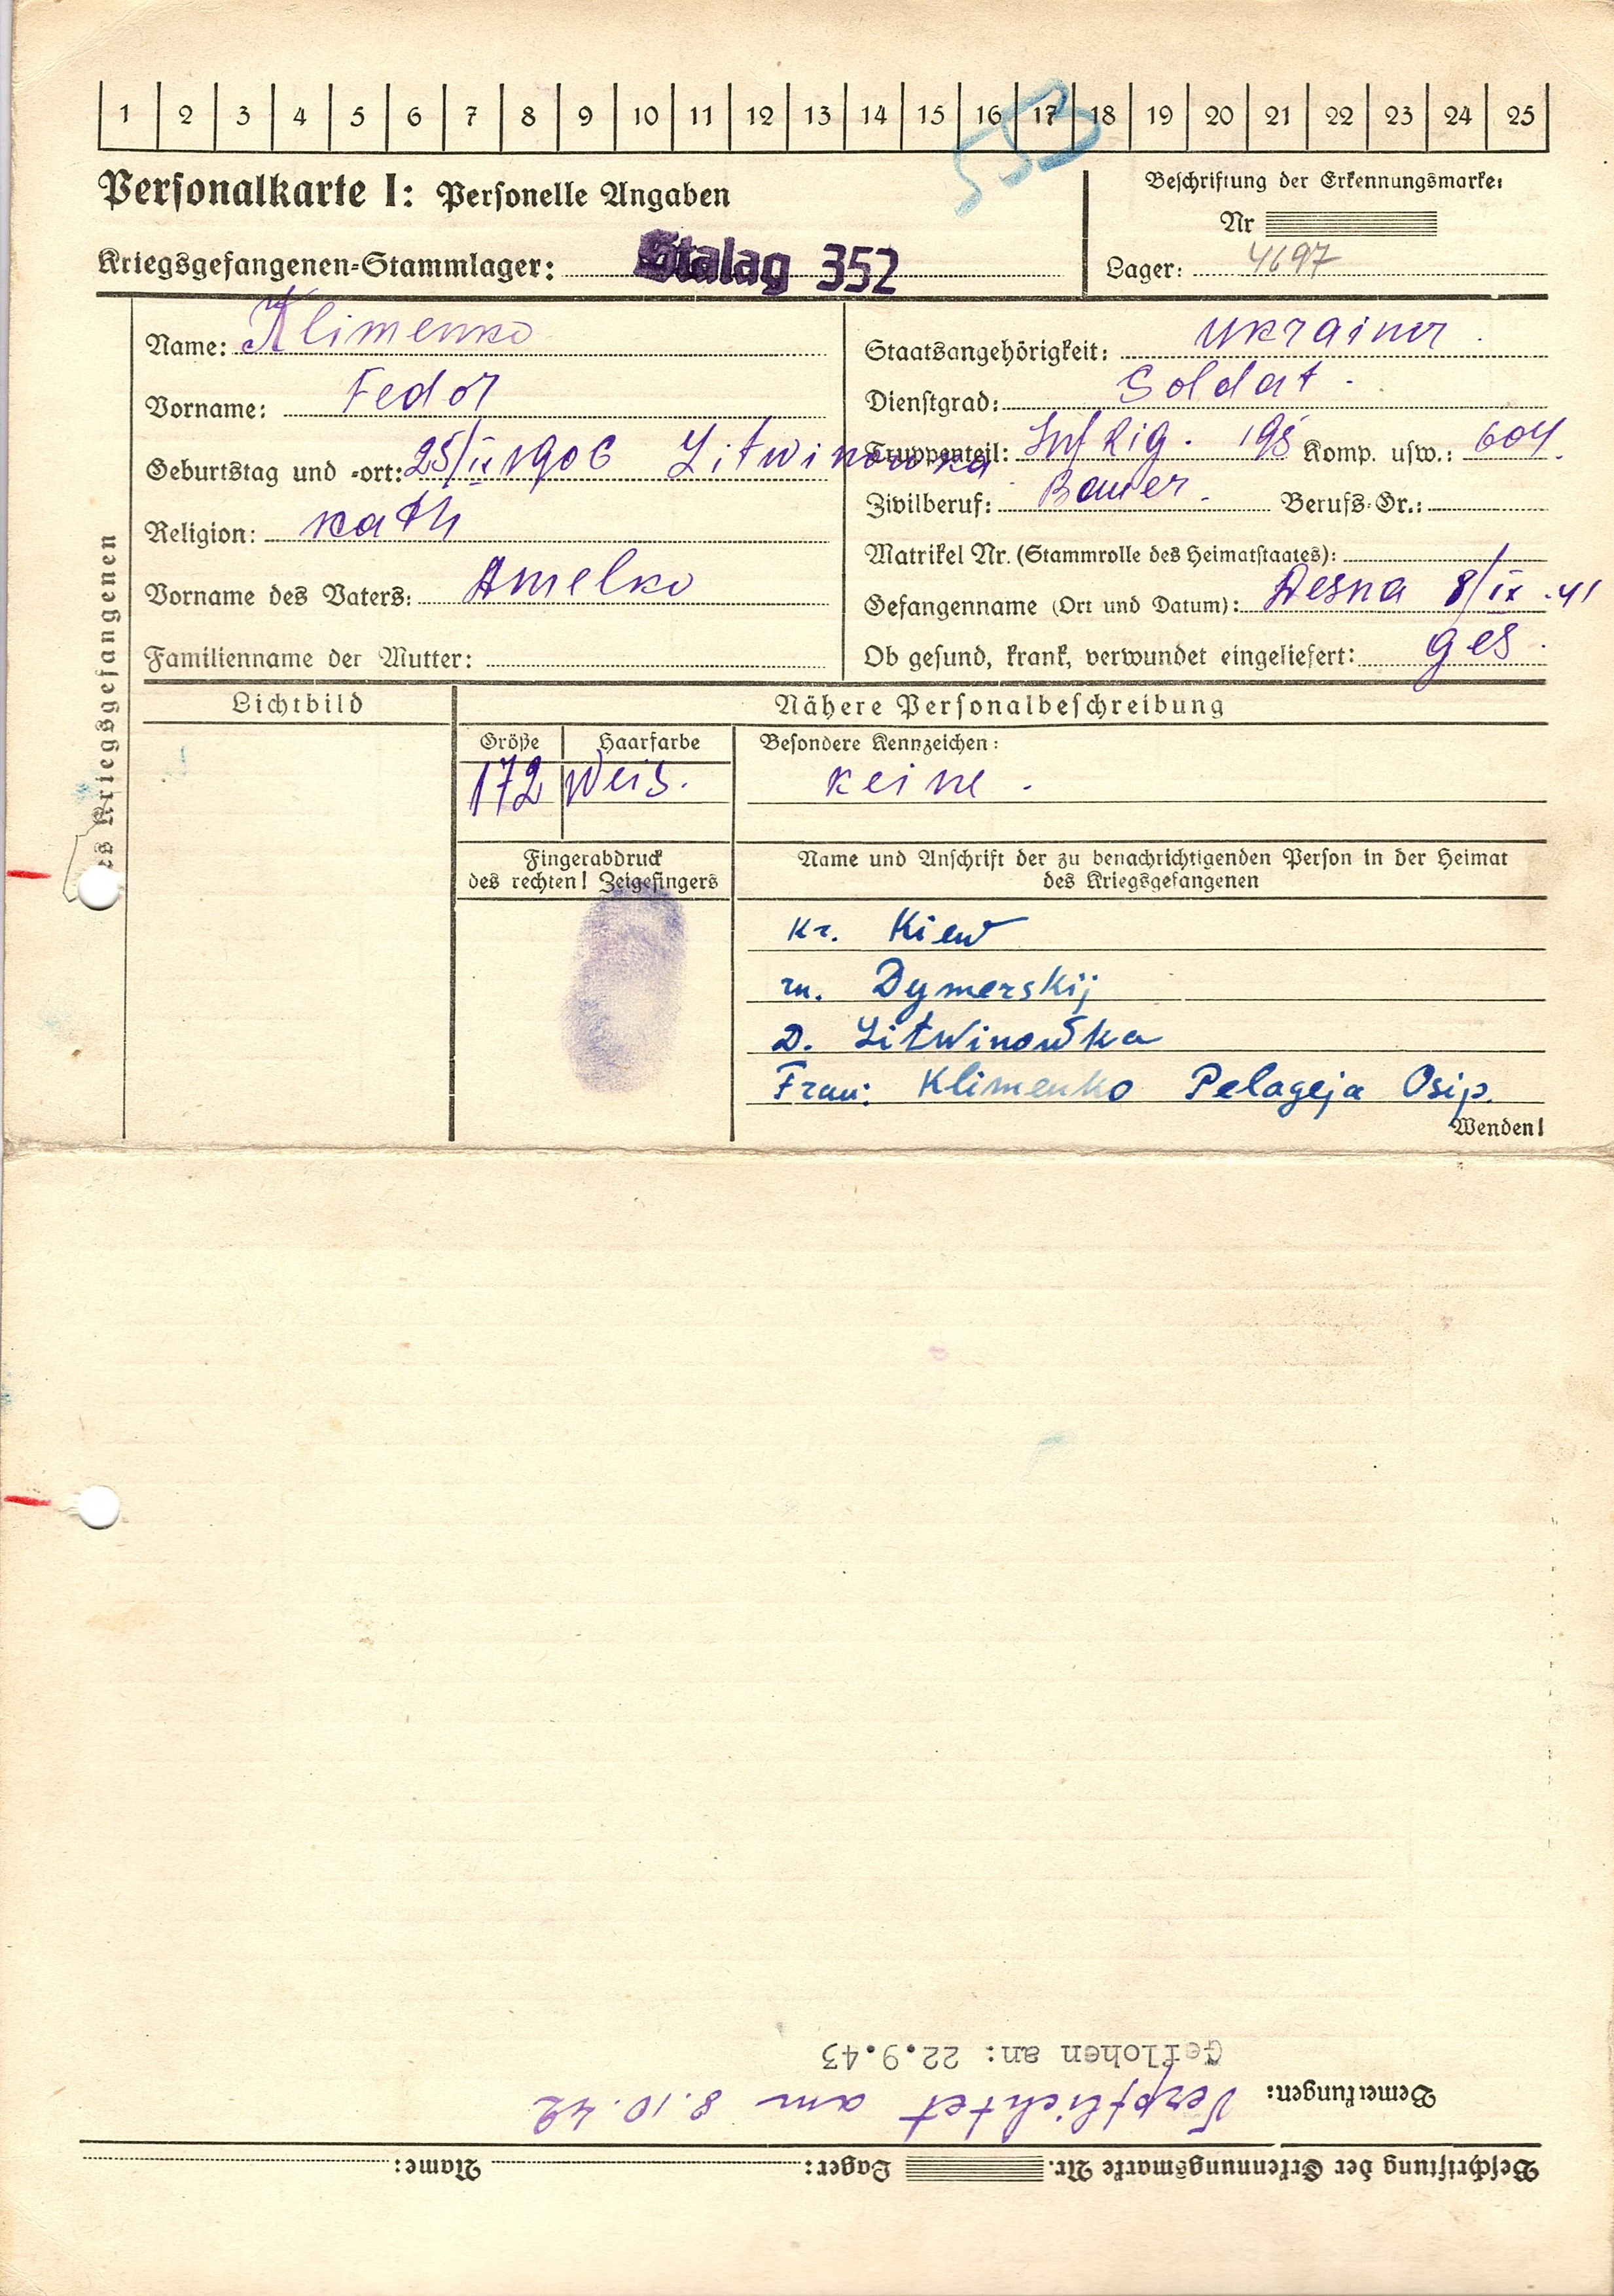 1 2 3 4 5 6 7 8 9 10 11 12 13 14 15 16 17 18 19 20 21 22 23 24 25
Personalkarte I: Personelle Angaben
Beschriftung der Erkennungsmarke:
Nr
Kriegsgefangenen-Stammlager: Stalag 352
Lager: 4697
des Kriegsgefangenen
Name: Klimenko
Vorname: Fedor
Geburtstag und -ort: 25/IX 1906 Litwinowka
Religion: kath
Vorname des Vaters: Amelko
Familienname der Mutter:
Staatsangehörigkeit: Ukrainer.
Dienstgrad: Soldat.
Truppenteil: Inf Rig. 195 Komp. usw.: 604.
Zivilberuf: Bauer. Berufs-Gr.:
Matrikel Nr. (Stammrolle des Heimatstaates):
Gefangenname (Ort und Datum): Desna 8/IX.41
Ob gesund, krank, verwundet eingeliefert: ges.
Lichtbild
Nähere Personalbeschreibung
Größe Haarfarbe Besondere Kennzeichen:
172 Weis. keine.
Fingerabdruck
des rechten! Zeigefingers
Name und Anschrift der zu benachrichtigenden Person in der Heimat
des Kriegsgefangenen
Kr. Kiew
rn. Dymerskij
D. Litwinowka
Frau: Klimenko Pelageja Osip.
Wenden!
Beschriftung der Erkennungsmarke Nr. Lager: Name:
Bemerkungen: Verpflichtet am 8.10.42
Geflohen an: 22.9.43